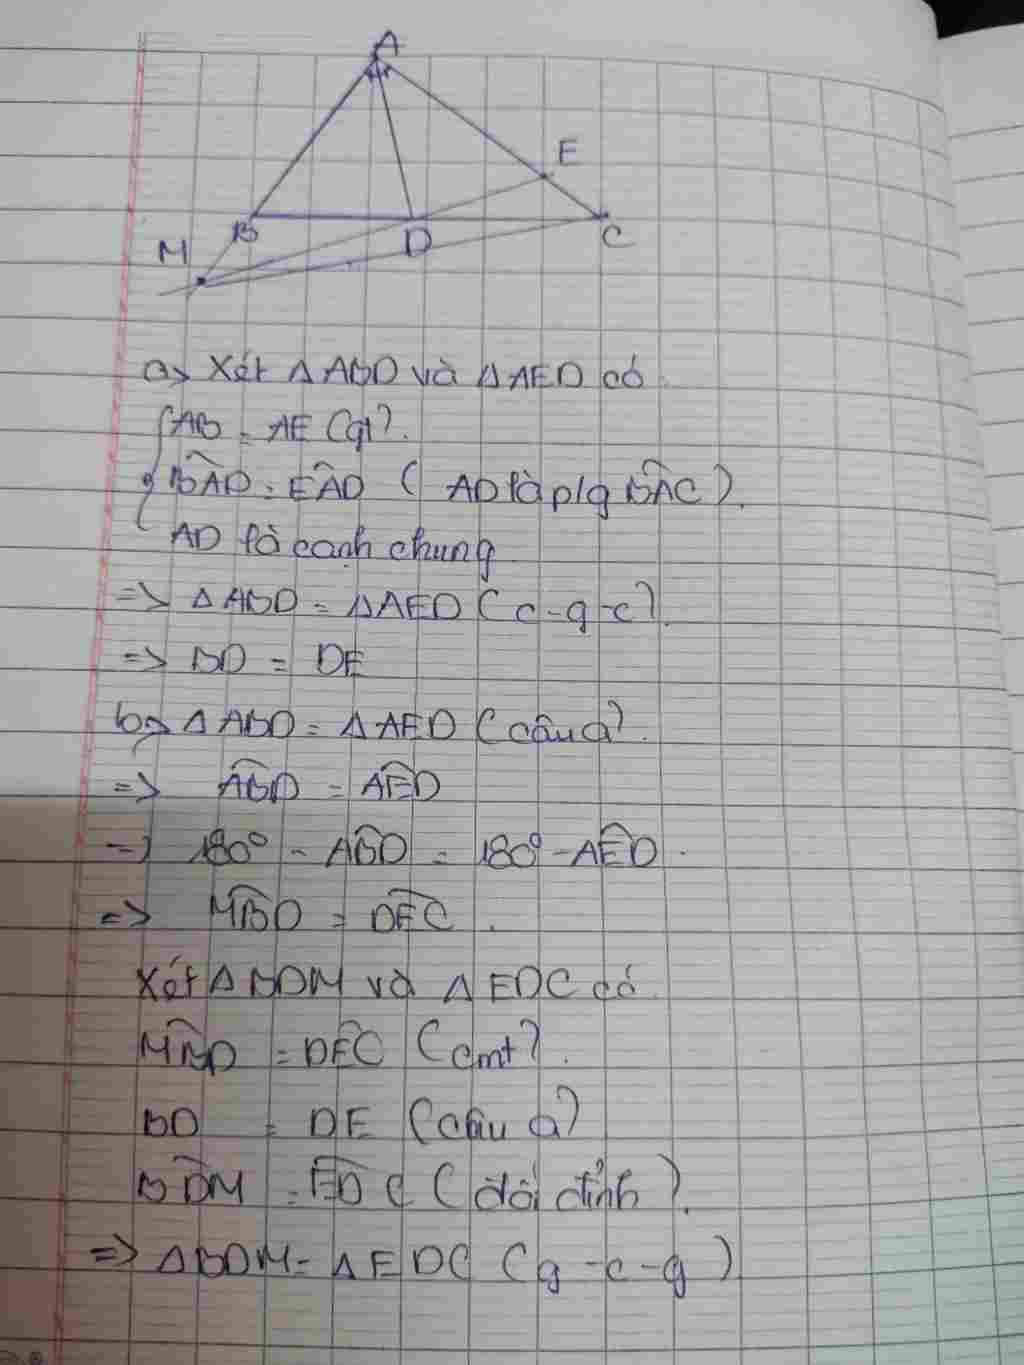 A
E
B
D
C
M
a, Xét △ABD và △AED có
AB = AE (gt).
BÂD = EÂD ( AD là p/g BÂC ).
AD là cạnh chung
=> △ABD = △AED ( c-g-c ).
=> BD = DE
b, △ABD = △AED ( câu a ).
=> AB̂D = AÊD
=> 180° - AB̂D = 180° - AÊD.
=> MB̂D = DÊC .
Xét △BDM và △EDC có
MB̂D = DÊC ( cmt ).
BD = DE ( câu a )
BD̂M = ED̂C ( đối đỉnh ).
=> △BDM = △EDC ( g-c-g )